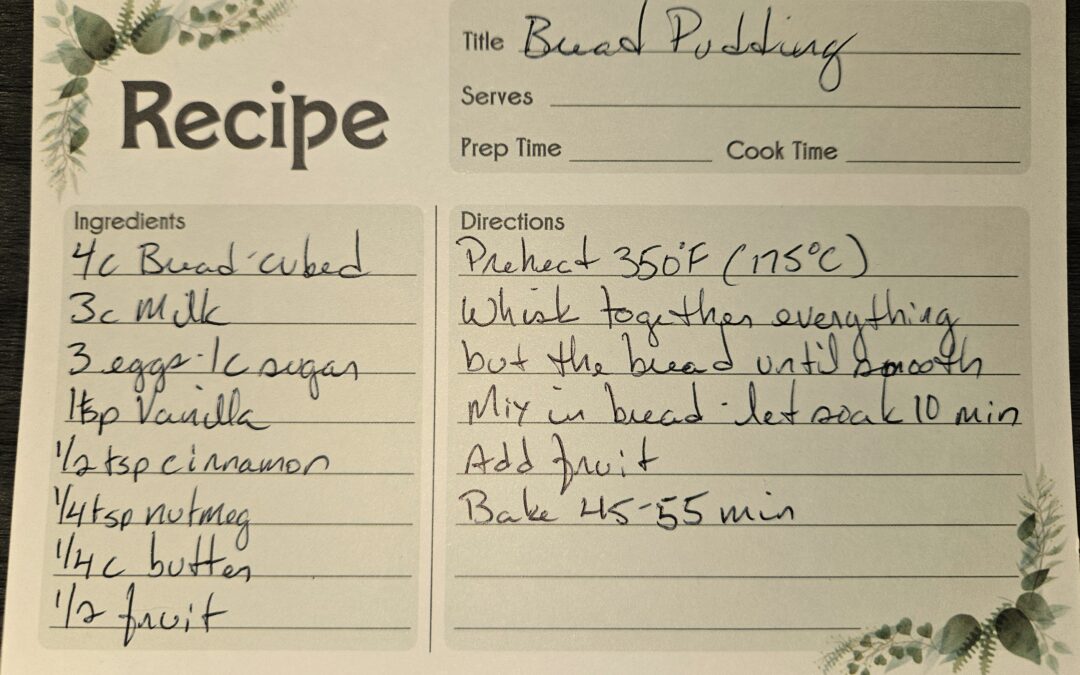 Recipe
Title Bread Pudding
Serves
Prep Time Cook Time
Ingredients
4c Bread-cubed
3c Milk
3 eggs-1c sugar
1tsp Vanilla
1/2 tsp cinnamon
1/4 tsp nutmeg
1/4 c butter
1/2 fruit
Directions
Preheat 350°F (175°C)
Whisk together everything
but the bread until smooth
Mix in bread-let soak 10 min
Add fruit
Bake 45-55 min